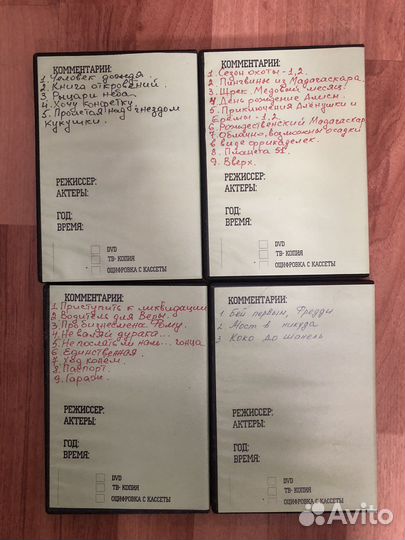 КОММЕНТАРИИ:
1. Человек дождя.
2. Книга откровений.
3 Рыцари неба.
4. Хочу конфетку.
5. Пролетая над гнездом
кукушки.
РЕЖИССЕР:
АКТЕРЫ:
ГОД:
ВРЕМЯ:
DVD
ТВ- КОПИЯ
ОЦИФРОВКА С КАССЕТЫ
КОММЕНТАРИИ:
1. Сезон охоты - 1,2.
2. Пингвины из Мадагаскара
3. Шрек. Медовый месяц!
4 День рождение Алисы.
5. Приключения Алёнушки и
Ерёмы - 1,2.
6. Рождественский Мадагаскар
7 Облачно, возможны осадки
в виде фрикаделек.
8. Планета 51.
9. Вверх.
РЕЖИССЕР:
АКТЕРЫ:
ГОД:
ВРЕМЯ:
DVD
ТВ- КОПИЯ
ОЦИФРОВКА С КАССЕТЫ
КОММЕНТАРИИ:
1. Приступить к ликвидации
2. Водитель для Веры.
3. Про бизнесмена Фому.
4. Не валяй дурака...
5. Не послать ли нам... гонца
6 Единственная.
7. Ход конём.
8. Паспорт.
9. Гараж.
РЕЖИССЕР:
АКТЕРЫ:
ГОД:
ВРЕМЯ:
DVD
ТВ- КОПИЯ
ОЦИФРОВКА С КАССЕТЫ
КОММЕНТАРИИ:
1 Бей первым, Фредди
2 Мост в никуда
3 Коко до шанель
РЕЖИССЕР:
АКТЕРЫ:
ГОД:
ВРЕМЯ:
DVD
ТВ- КОПИЯ
ОЦИФРОВКА С КАССЕТЫ
Avito